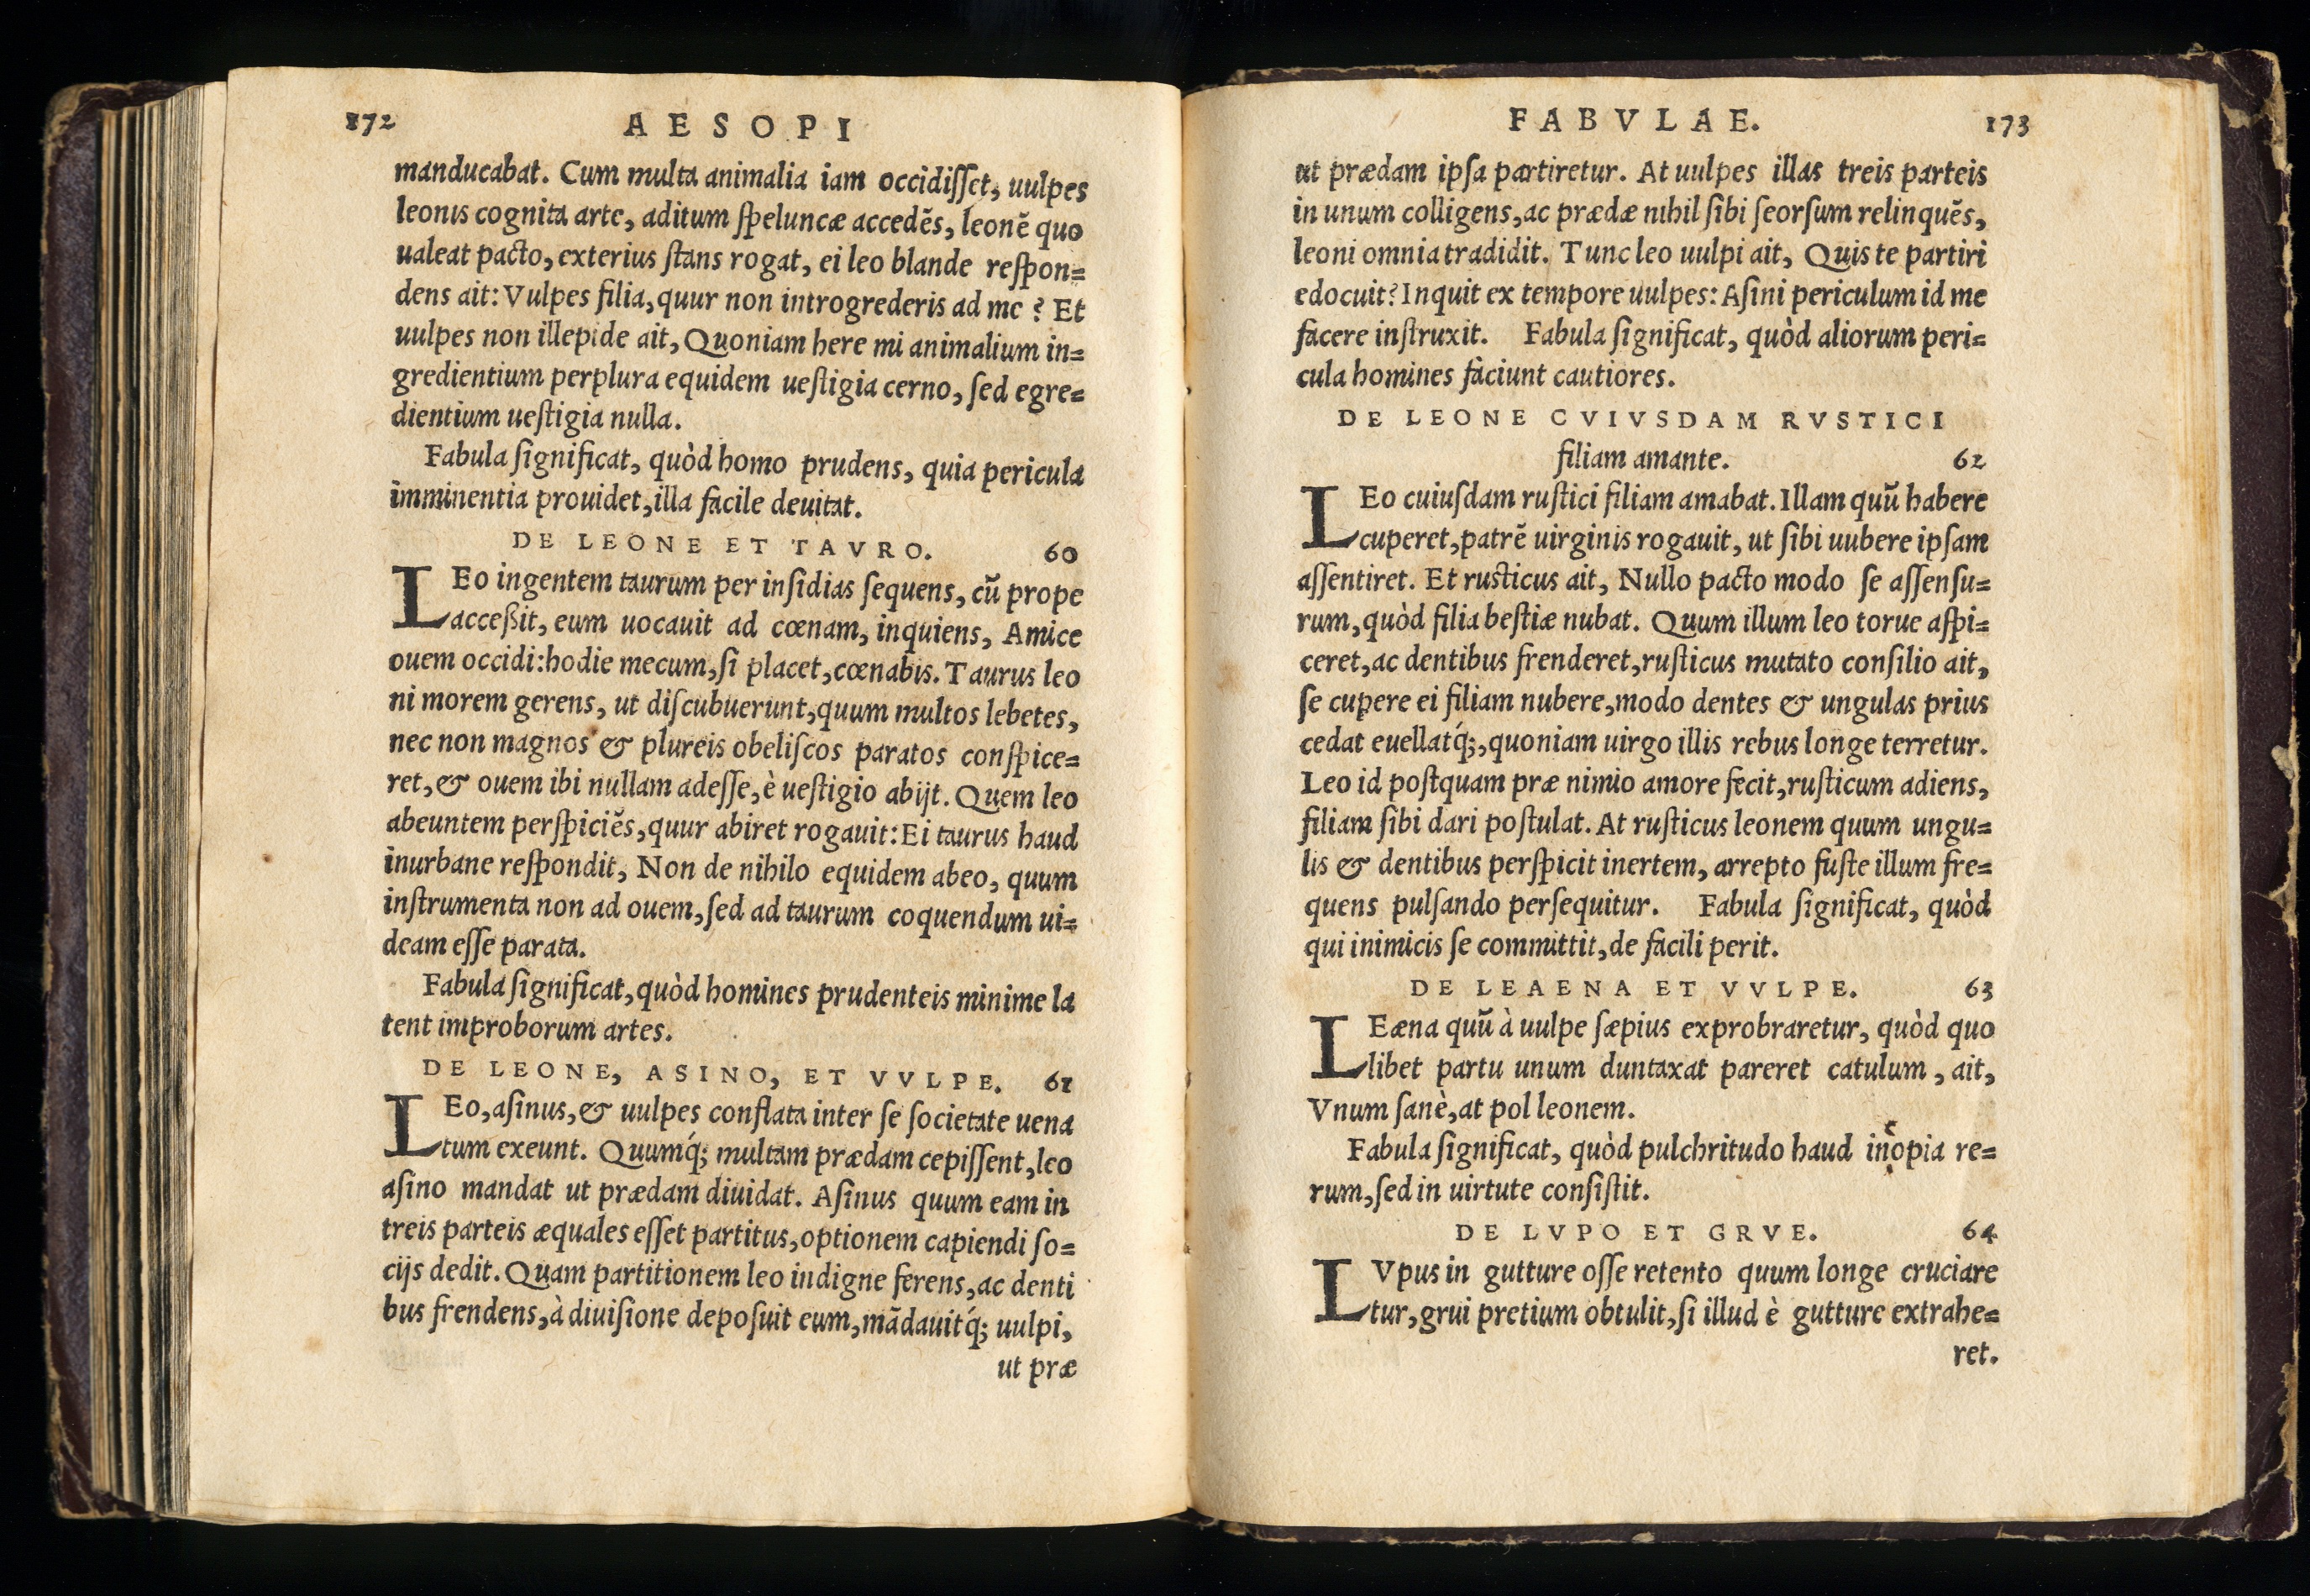 172 AESOPI
manducabat. Cum multa animalia iam occidiſſet, uulpes
leonis cognita arte, aditum ſpeluncæ accedẽs, leonẽ quo
ualeat pacto, exterius ſtans rogat, ei leo blande reſpon=
dens ait: Vulpes filia, quur non introgrederis ad me? Et
uulpes non illepide ait, Quoniam here mi animalium in=
gredientium perplura equidem ueſtigia cerno, ſed egre=
dientium ueſtigia nulla.
Fabula ſignificat, quòd homo prudens, quia pericula
imminentia prouidet, illa facile deuitat.
DE LEONE ET TAVRO. 60
LEo ingentem taurum per inſidias ſequens, cũ prope
acceßit, eum uocauit ad cœnam, inquiens, Amice
ouem occidi: hodie mecum, ſi placet, cœnabis. Taurus leo
ni morem gerens, ut diſcubuerunt, quum multos lebetes,
nec non magnos & plureis obeliſcos paratos conſpice=
ret, & ouem ibi nullam adeſſe, è ueſtigio abijt. Quem leo
abeuntem perſpiciẽs, quur abiret rogauit: Ei taurus haud
inurbane reſpondit, Non de nihilo equidem abeo, quum
inſtrumenta non ad ouem, ſed ad taurum coquendum ui=
deam eſſe parata.
Fabula ſignificat, quòd homines prudenteis minime la
tent improborum artes.
DE LEONE, ASINO, ET VVLPE. 61
LEo, aſinus, & uulpes conflata inter ſe societate uena
tum exeunt. Quumq́; multam prædam cepiſſent, leo
aſino mandat ut prædam diuidat. Aſinus quum eam in
treis parteis æquales eſſet partitus, optionem capiendi ſo=
cijs dedit. Quam partitionem leo indigne ferens, ac denti
bus frendens, à diuiſione depoſuit eum, mãdauitq́; uulpi,
ut præ
FABVLAE. 173
ut prædam ipſa partiretur. At uulpes illas treis parteis
in unum colligens, ac prædæ nihil ſibi ſeorſum relinquẽs,
leoni omnia tradidit. Tunc leo uulpi ait, Quis te partiri
edocuit? Inquit ex tempore uulpes: Aſini periculum id me
facere inſtruxit. Fabula ſignificat, quòd aliorum peri=
cula homines faciunt cautiores.
DE LEONE CVIVSDAM RVSTICI
filiam amante. 62
LEo cuiuſdam ruſtici filiam amabat. Illam quũ habere
cuperet, patrẽ uirginis rogauit, ut ſibi uubere ipſam
aſſentiret. Et ruſticus ait, Nullo pacto modo ſe aſſenſu=
rum, quòd filia beſtiæ nubat. Quum illum leo torue aſpi=
ceret, ac dentibus frenderet, ruſticus mutato conſilio ait,
ſe cupere ei filiam nubere, modo dentes & ungulas prius
cedat euellatq́;, quoniam uirgo illis rebus longe terretur.
Leo id poſtquam præ nimio amore fecit, ruſticum adiens,
filiam ſibi dari poſtulat. At ruſticus leonem quum ungu=
lis & dentibus perſpicit inertem, arrepto fuſte illum fre=
quens pulſando perſequitur. Fabula ſignificat, quòd
qui inimicis ſe committit, de facili perit.
DE LEAENA ET VVLPE. 63
LEæna quũ à uulpe ſæpius exprobraretur, quòd quo
libet partu unum duntaxat pareret catulum, ait,
Vnum ſanè, at pol leonem.
Fabula ſignificat, quòd pulchritudo haud in copia re=
rum, ſed in uirtute conſiſtit.
DE LVPO ET GRVE. 64
LVpus in gutture oſſe retento quum longe cruciare
tur, grui pretium obtulit, ſi illud è gutture extrahe=
ret.